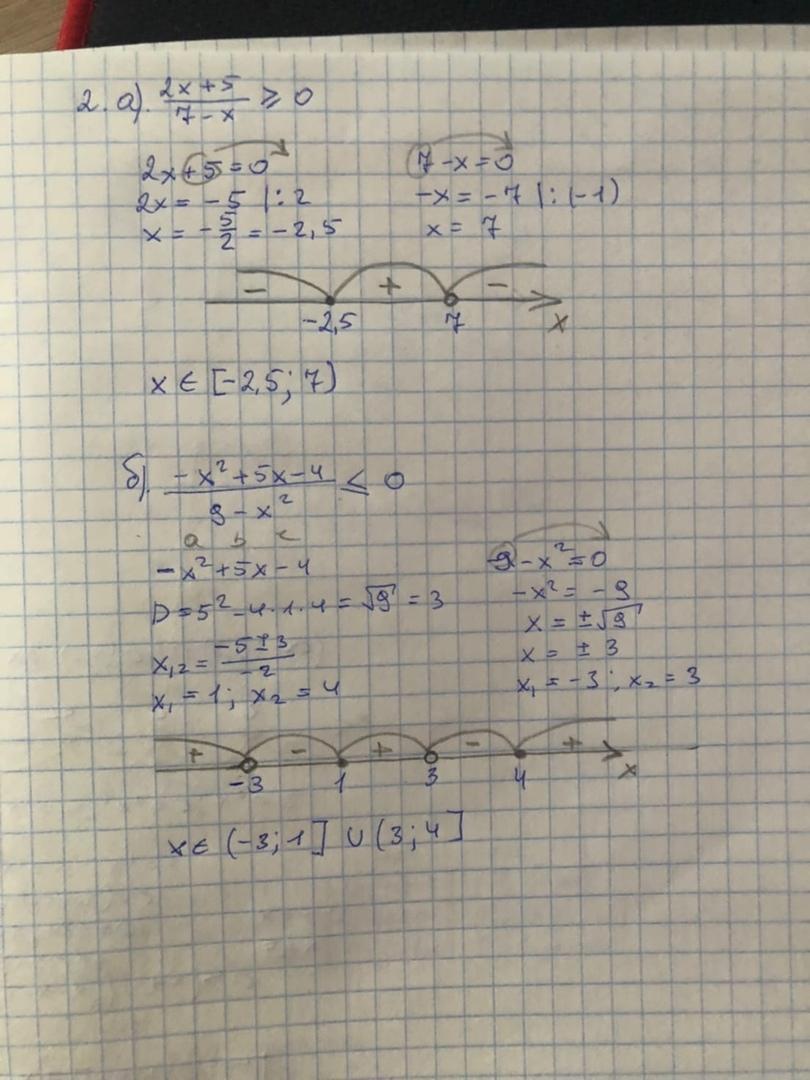 2. а). (2x+5)/(7-x) ≥ 0
2x+5=0
2x = -5 |:2
x = -5/2 = -2,5
7-x=0
-x = -7 |:(-1)
x = 7
- + -
-2,5 7 x
x ∈ [-2,5; 7)
б). (-x²+5x-4)/(9-x²) ≤ 0
a b c
-x²+5x-4
D=5²-4·1·4 = √9 = 3
x₁,₂ = (-5±3)/(-2)
x₁ = 1; x₂ = 4
9-x²=0
-x² = -9
x = ±√9
x = ± 3
x₁ = -3; x₂ = 3
+ - + - +
-3 1 3 4 x
x ∈ (-3; 1] ∪ (3; 4]